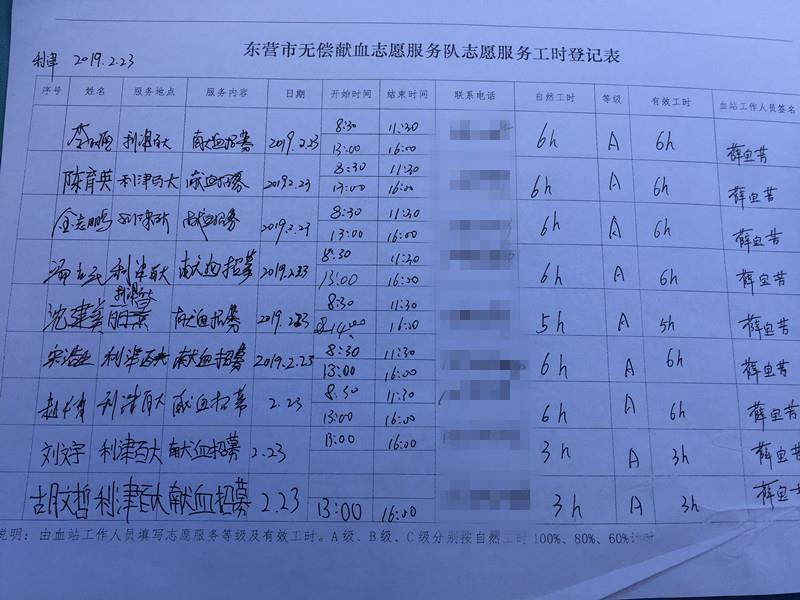 东营市无偿献血志愿服务队志愿服务工时登记表
利津 2019.2.23
序号 姓名 服务地点 服务内容 日期 开始时间 结束时间 联系电话 自然工时 等级 有效工时 血站工作人员签名
利津百大 献血招募 2019.2.23 8:30 11:30 6h A 6h
13:00 16:00
陈育英 利津百大 献血招募 2019 2.23 8:30 11:30 6h A 6h
13:00 16:00
金志鹏 利津百大 献血招募 2019.2.23 8:30 11:30 6h A 6h
13:00 16:00
利津百大 献血招募 2019.2.23 8:30 11:30 6h A 6h
13:00 16:00
利津百大
沈建美 献血招募 2019.2.23 8:30 11:30 5h A 5h
14:00 16:00
利津百大 献血招募 2019.2.23 8:30 11:30 6h A 6h
13:00 16:00
利津百大 献血招募 2.23 8:30 11:30 6h A 6h
13:00 16:00
刘文宇 利津百大 献血招募 2.23 13:00 16:00 3h A 3h
胡文哲 利津百大 献血招募 2.23 13:00 16:00 3h A 3h
说明：由血站工作人员填写志愿服务等级及有效工时。A级、B级、C级分别按自然工时100%、80%、60%计时